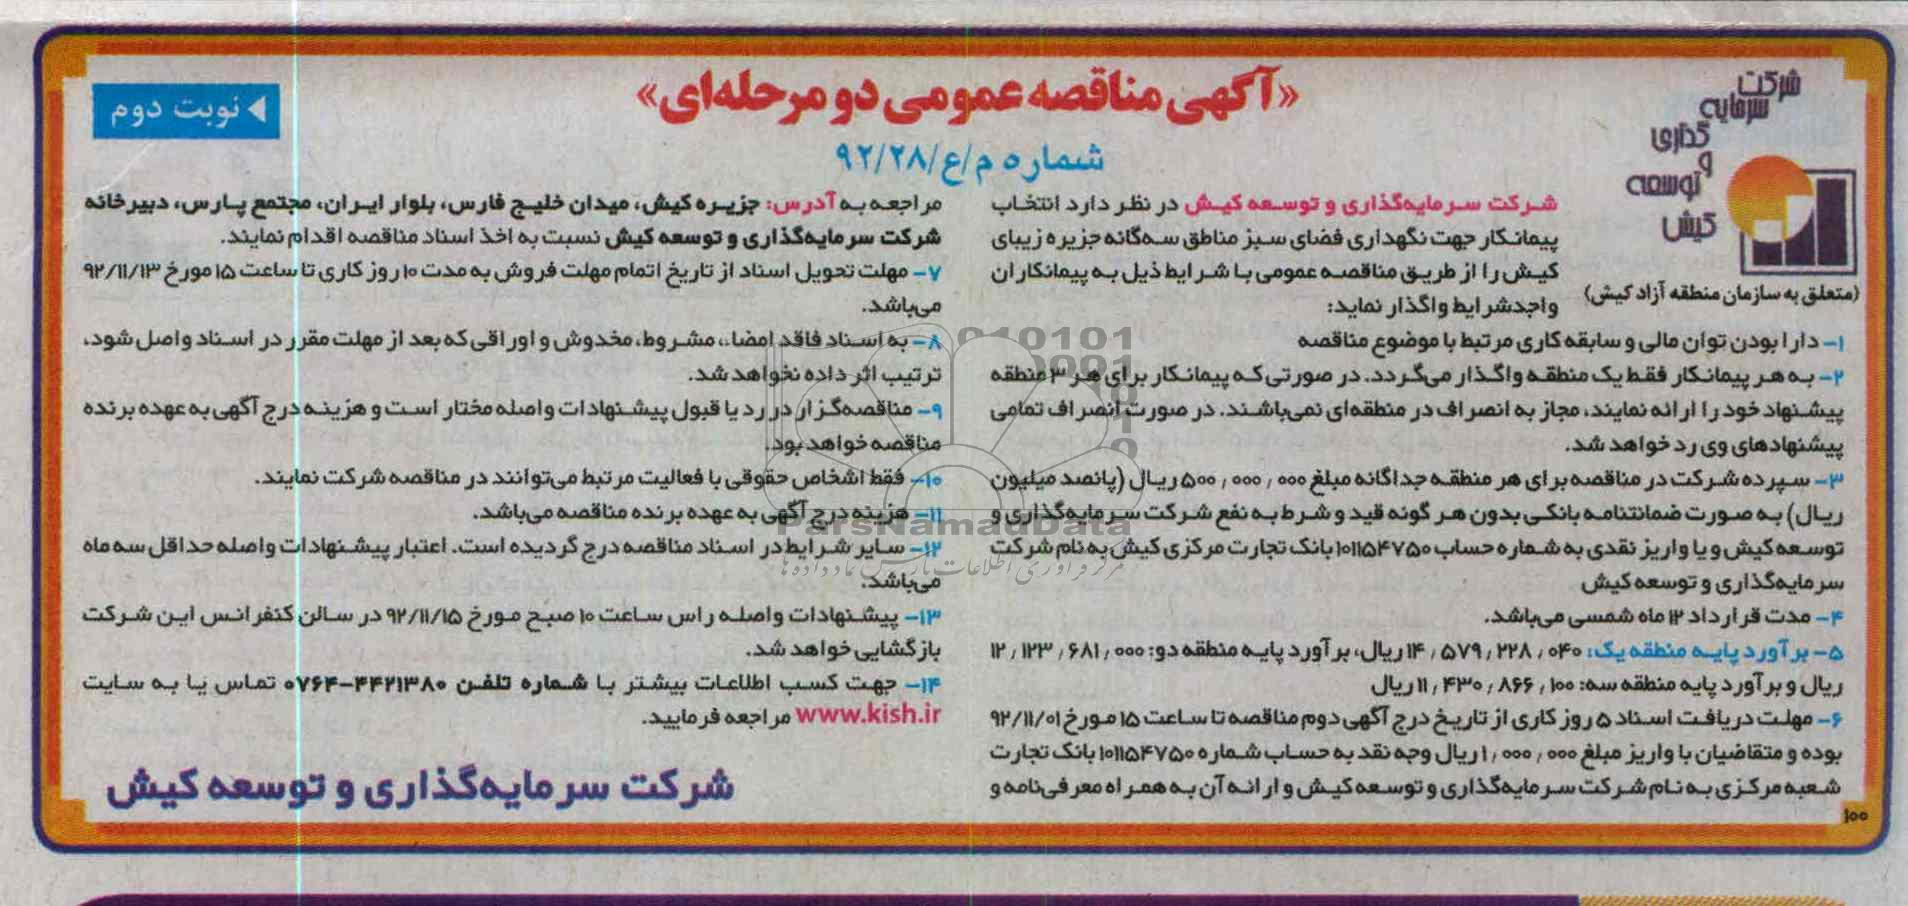 «آگهی مناقصه عمومی دو مرحله‌ای»
نوبت دوم
شماره م/ع/۹۲/۲۸
شرکت
سرمایه
گذاری
و
توسعه
کیش
(متعلق به سازمان منطقه آزاد کیش)
شرکت سرمایه‌گذاری و توسعه کیش در نظر دارد انتخاب
پیمانکار جهت نگهداری فضای سبز مناطق سه‌گانه جزیره زیبای
کیش را از طریق مناقصه عمومی با شرایط ذیل به پیمانکاران
واجدشرایط واگذار نماید:
۱- دارا بودن توان مالی و سابقه کاری مرتبط با موضوع مناقصه
۲- به هر پیمانکار فقط یک منطقه واگذار می‌گردد. در صورتی‌که پیمانکار برای هر ۳ منطقه
پیشنهاد خود را ارائه نمایند، مجاز به انصراف در منطقه‌ای نمی‌باشند. در صورت انصراف تمامی
پیشنهادهای وی رد خواهد شد.
۳- سپرده شرکت در مناقصه برای هر منطقه جداگانه مبلغ ۵۰۰٫۰۰۰٫۰۰۰ ریال (پانصد میلیون
ریال) به صورت ضمانتنامه بانکی بدون هر گونه قید و شرط به نفع شرکت سرمایه‌گذاری و
توسعه کیش و یا واریز نقدی به شماره حساب ۱۰۱۱۵۴۷۵۰ بانک تجارت مرکزی کیش به نام شرکت
سرمایه‌گذاری و توسعه کیش
۴- مدت قرارداد ۱۲ ماه شمسی می‌باشد.
۵- برآورد پایه منطقه یک: ۱۴٫۵۷۹٫۲۲۸٫۰۴۰ ریال، برآورد پایه منطقه دو: ۱۲٫۱۲۳٫۶۸۱٫۰۰۰
ریال و برآورد پایه منطقه سه: ۱۱٫۴۳۰٫۸۶۶٫۱۰۰ ریال
۶- مهلت دریافت اسناد ۵ روز کاری از تاریخ درج آگهی دوم مناقصه تا ساعت ۱۵ مورخ ۹۲/۱۱/۰۱
بوده و متقاضیان با واریز مبلغ ۱٫۰۰۰٫۰۰۰ ریال وجه نقد به حساب شماره ۱۰۱۱۵۴۷۵۰ بانک تجارت
شعبه مرکزی به نام شرکت سرمایه‌گذاری و توسعه کیش و ارائه آن به همراه معرفی‌نامه و
مراجعه به آدرس: جزیره کیش، میدان خلیج فارس، بلوار ایران، مجتمع پارس، دبیرخانه
شرکت سرمایه‌گذاری و توسعه کیش نسبت به اخذ اسناد مناقصه اقدام نمایند.
۷- مهلت تحویل اسناد از تاریخ اتمام مهلت فروش به مدت ۱۰ روز کاری تا ساعت ۱۵ مورخ ۹۲/۱۱/۱۳
می‌باشد.
۸- به اسناد فاقد امضاء، مشروط، مخدوش و اوراقی که بعد از مهلت مقرر در اسناد واصل شود،
ترتیب اثر داده نخواهد شد.
۹- مناقصه‌گزار در رد یا قبول پیشنهادات واصله مختار است و هزینه درج آگهی به عهده برنده
مناقصه خواهد بود.
۱۰- فقط اشخاص حقوقی با فعالیت مرتبط می‌توانند در مناقصه شرکت نمایند.
۱۱- هزینه درج آگهی به عهده برنده مناقصه می‌باشد.
۱۲- سایر شرایط در اسناد مناقصه درج گردیده است. اعتبار پیشنهادات واصله حداقل سه ماه
می‌باشد.
۱۳- پیشنهادات واصله راس ساعت ۱۰ صبح مورخ ۹۲/۱۱/۱۵ در سالن کنفرانس این شرکت
بازگشایی خواهد شد.
۱۴- جهت کسب اطلاعات بیشتر با شماره تلفن ۰۷۶۴-۴۴۲۱۳۸۰ تماس یا به سایت
www.kish.ir مراجعه فرمایید.
شرکت سرمایه‌گذاری و توسعه کیش
۱۰۰
ParsNamadData